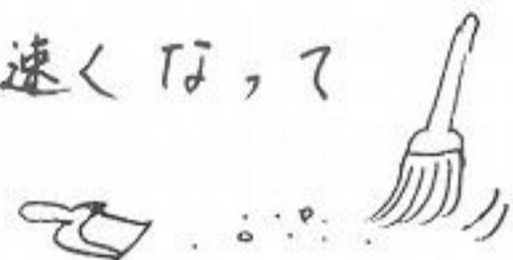 速くなって